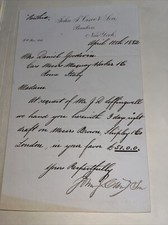 John J. Cisco & Son
Bankers
New York
April 18th 1882
Mrs Daniel
Care Messrs Maquay Hooker & Co
Rome Italy
Madam
At request of Mr J. A. Leffingwell
we hand you herewith 3 days sight
draft on Messrs Brown Shipley & Co
London, in your favor £51.0.0.
Yours Respectfully
John J. Cisco & Son